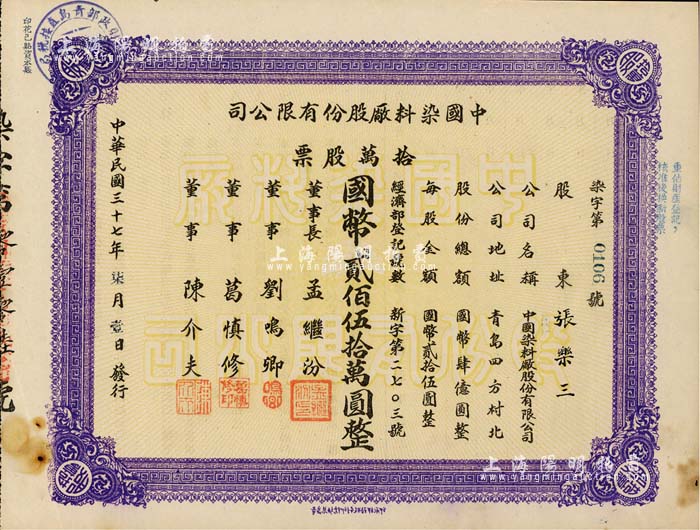 中國染料廠股份有限公司
拾萬股票
染字第0106號
股東 張樂三
公司名稱 中國染料廠股份有限公司
公司地址 青島四方村北
股份總額 國幣肆億圓整
每股金額 國幣貳拾伍圓整
經濟部登記號數 新字第二七〇三號
國幣貳佰伍拾萬圓整
董事長 孟繼汾
董事 劉鳴卿
董事 葛慎修
董事 陳介夫
中華民國三十七年柒月壹日發行
重估財產登記，
核准後換新股票
中國染料廠
股份有限公司
上海陽明拍賣
www.yangmingauction.com
上海陽明拍賣